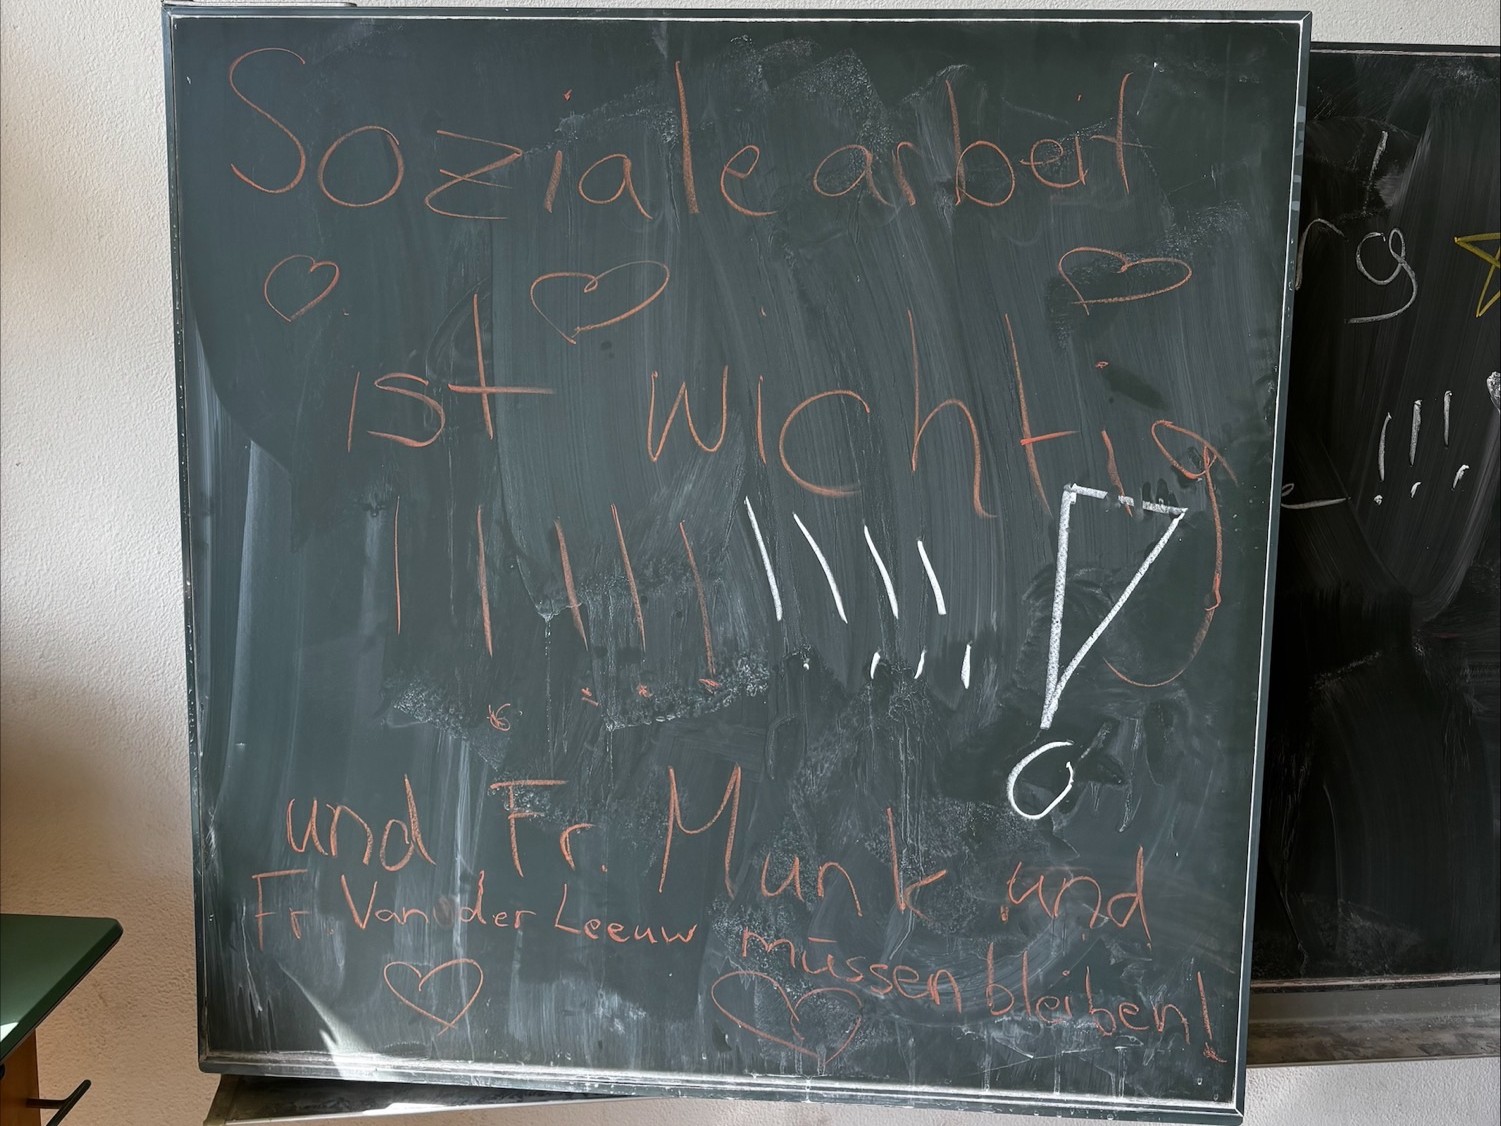 Sozialearbeit
ist wichtig
!!!!!!!!!!
und Fr. Munk und
Fr. Van der Leeuw müssen bleiben!
rg
!!!